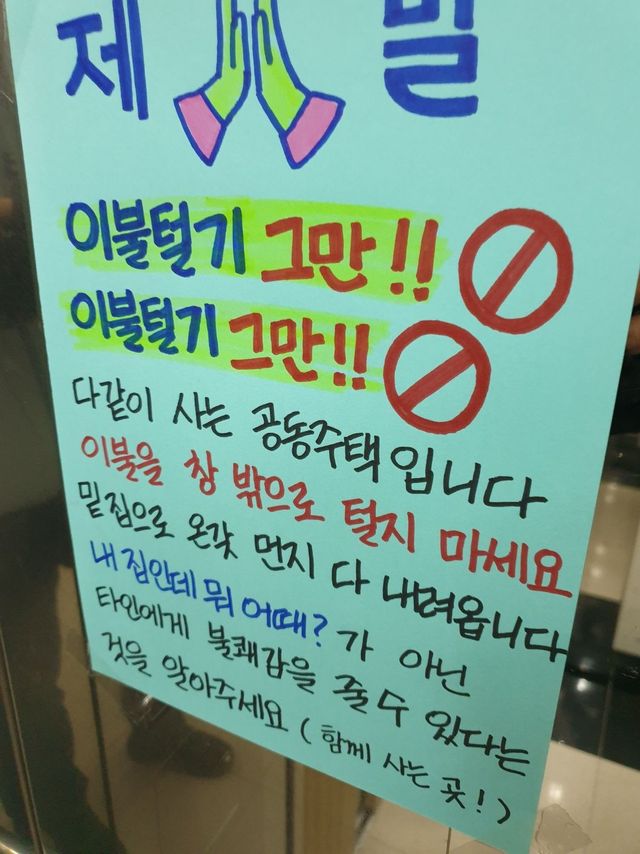 제 발
이불털기 그만!!
이불털기 그만!!
다같이 사는 공동주택입니다
이불을 창 밖으로 털지 마세요
밑집으로 온갖 먼지 다 내려옵니다
내 집인데 뭐 어때? 가 아닌
타인에게 불쾌감을 줄 수 있다는
것을 알아주세요 (함께 사는 곳!)